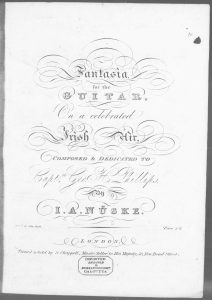 Fantasia
for the
GUITAR,
On a celebrated
Irish Air,
COMPOSED & DEDICATED TO
Captn. Geo. Phillips,
By
I. A. NÜSKE.
Price
LONDON,
Printed & Sold by S. Chappell, Music Seller to His Majesty, 50, New Bond Street.
CALCUTTA